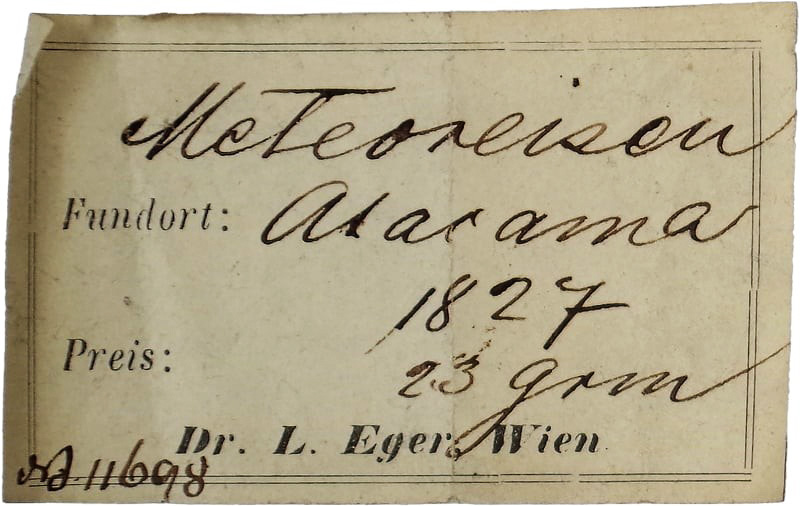 Meteoreisen
Fundort: Atacama
1827
Preis: 23 grm
Dr. L. Eger, Wien
11698